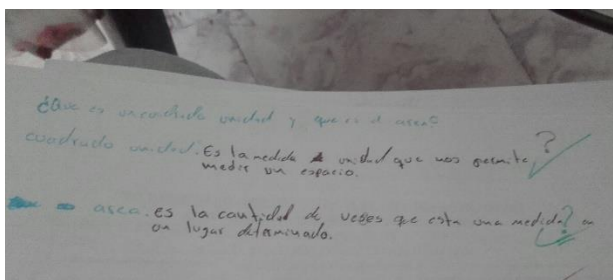 ¿Que es un cuadrado unidad y que es el area?
cuadrado unidad. Es la medida unidad que nos permite ?
medir un espacio.
area. es la cantidad de veces que esta una medida? en
un lugar determinado.